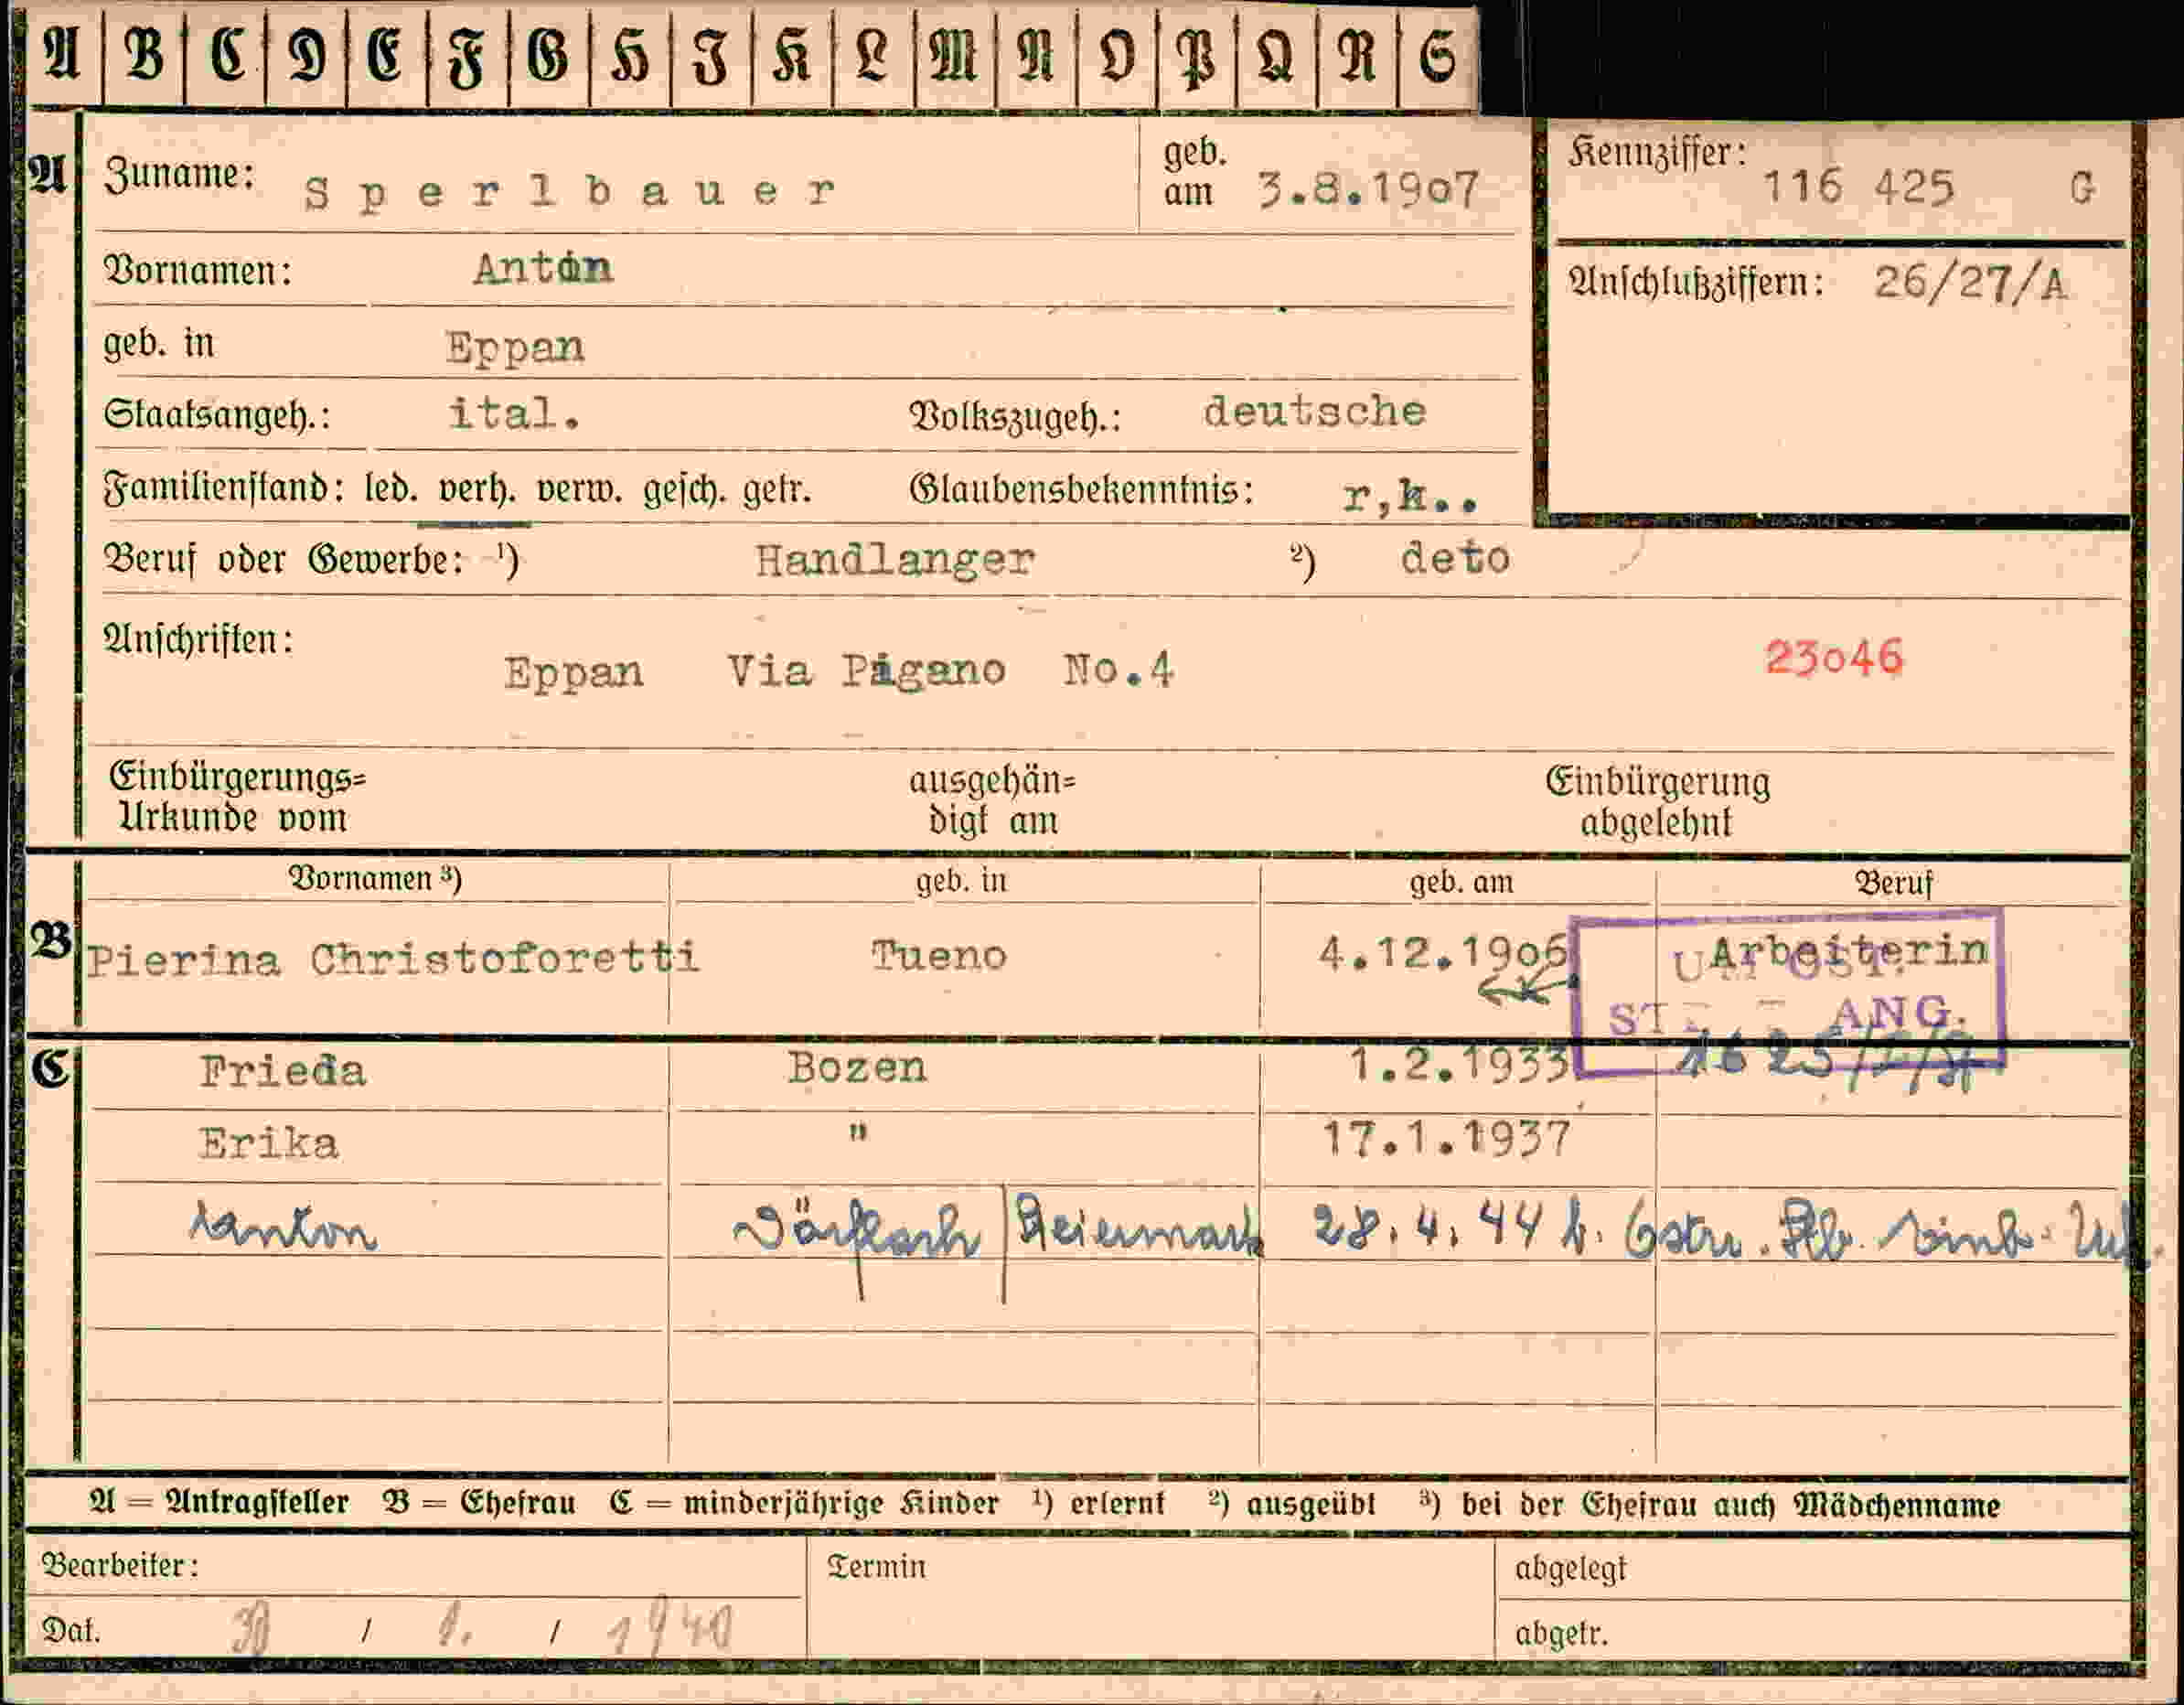 A B C D E F G H J K L M N O P Q R S
A Zuname: Sperlbauer geb. am 3.8.1907 Kennziffer: 116 425 G
Vornamen: Anton Anschlußziffern: 26/27/A
geb. in Eppan
Staatsangeh.: ital. Volkszugeh.: deutsche
Familienstand: led. verh. verw. gesch. getr. Glaubensbekenntnis: r,k..
Beruf oder Gewerbe: ¹) Handlanger ²) deto
Anschriften:
Eppan Via Pagano No.4 23o46
Einbürgerungs= ausgehän= Einbürgerung
Urkunde vom digt am abgelehnt
Vornamen ³) geb. in geb. am Beruf
B Pierina Christoforetti Tueno 4.12.1906 Arbeiterin
ANG.
C Frieda Bozen 1.2.1933
Erika " 17.1.1937
Anton 28.4.44
A = Antragsteller B = Ehefrau C = minderjährige Kinder ¹) erlernt ²) ausgeübt ³) bei der Ehefrau auch Mädchenname
Bearbeiter: Termin abgelegt
Dat. / / 1940 abgetr.